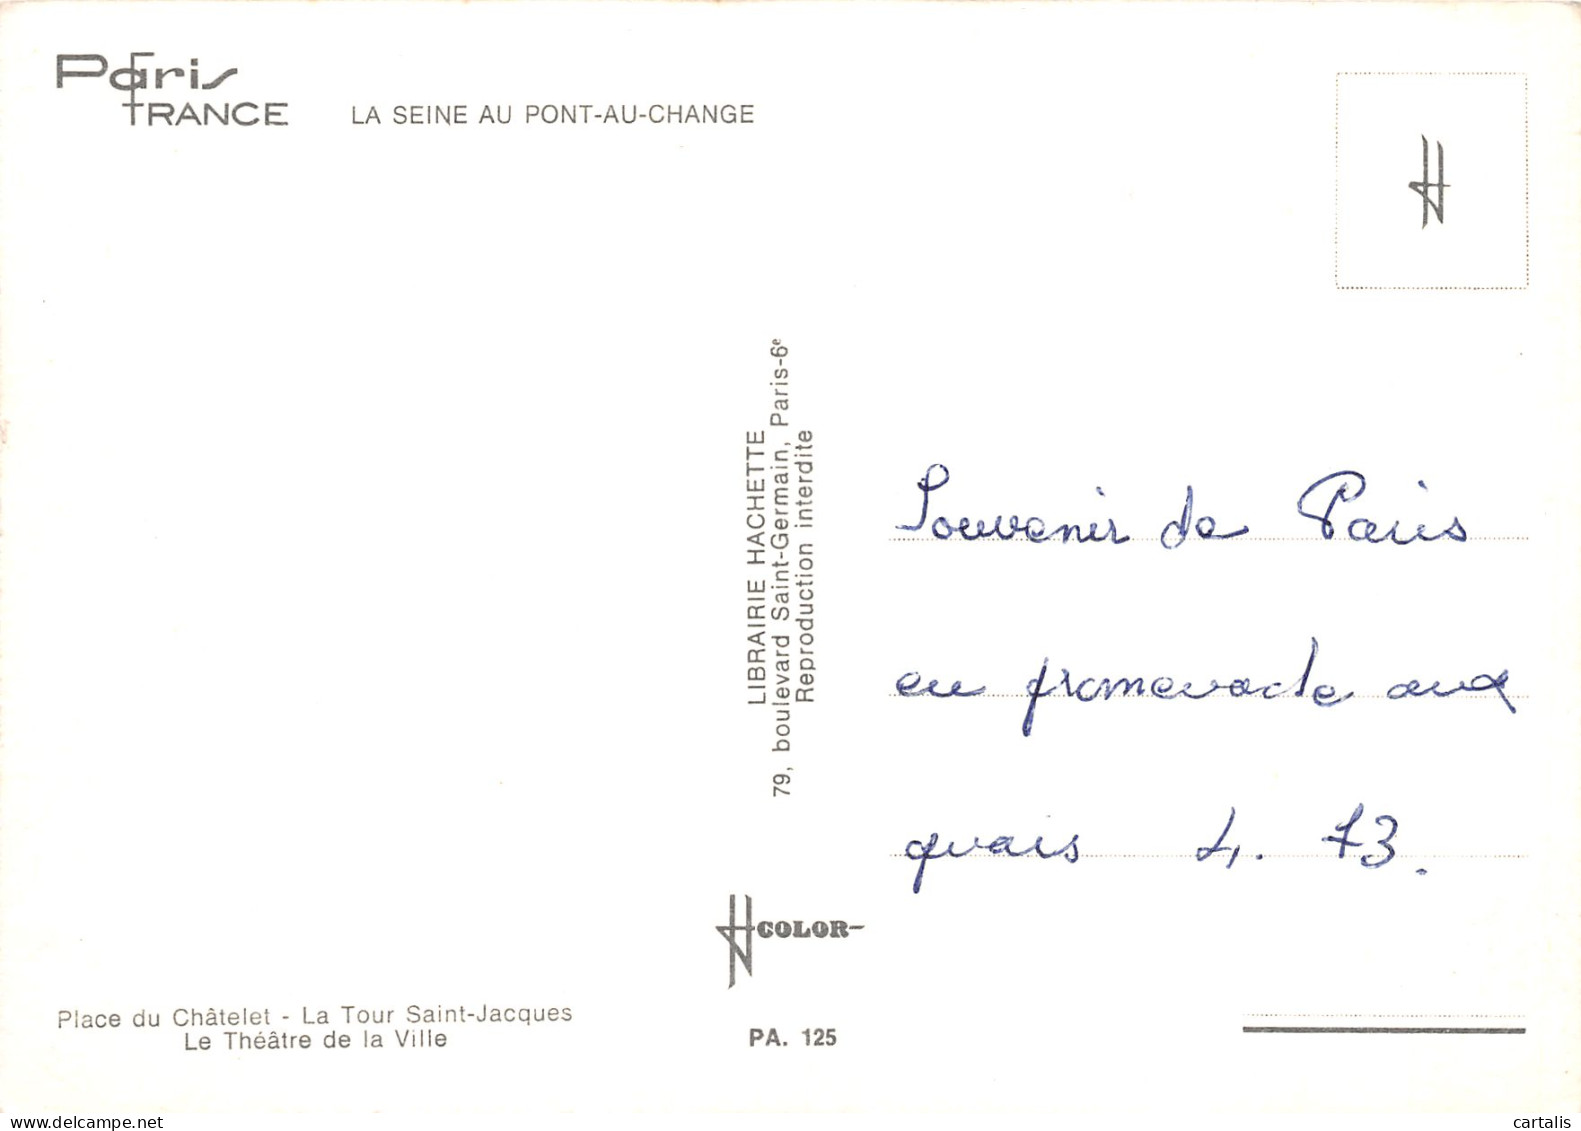 Paris
FRANCE
LA SEINE AU PONT-AU-CHANGE
LIBRAIRIE HACHETTE
79, boulevard Saint-Germain, Paris-6e
Reproduction interdite
Souvenir de Paris
en promenade aux
quais 4. 73.
COLOR
Place du Châtelet - La Tour Saint-Jacques
Le Théâtre de la Ville
PA. 125
www.delcampe.net
cartalis